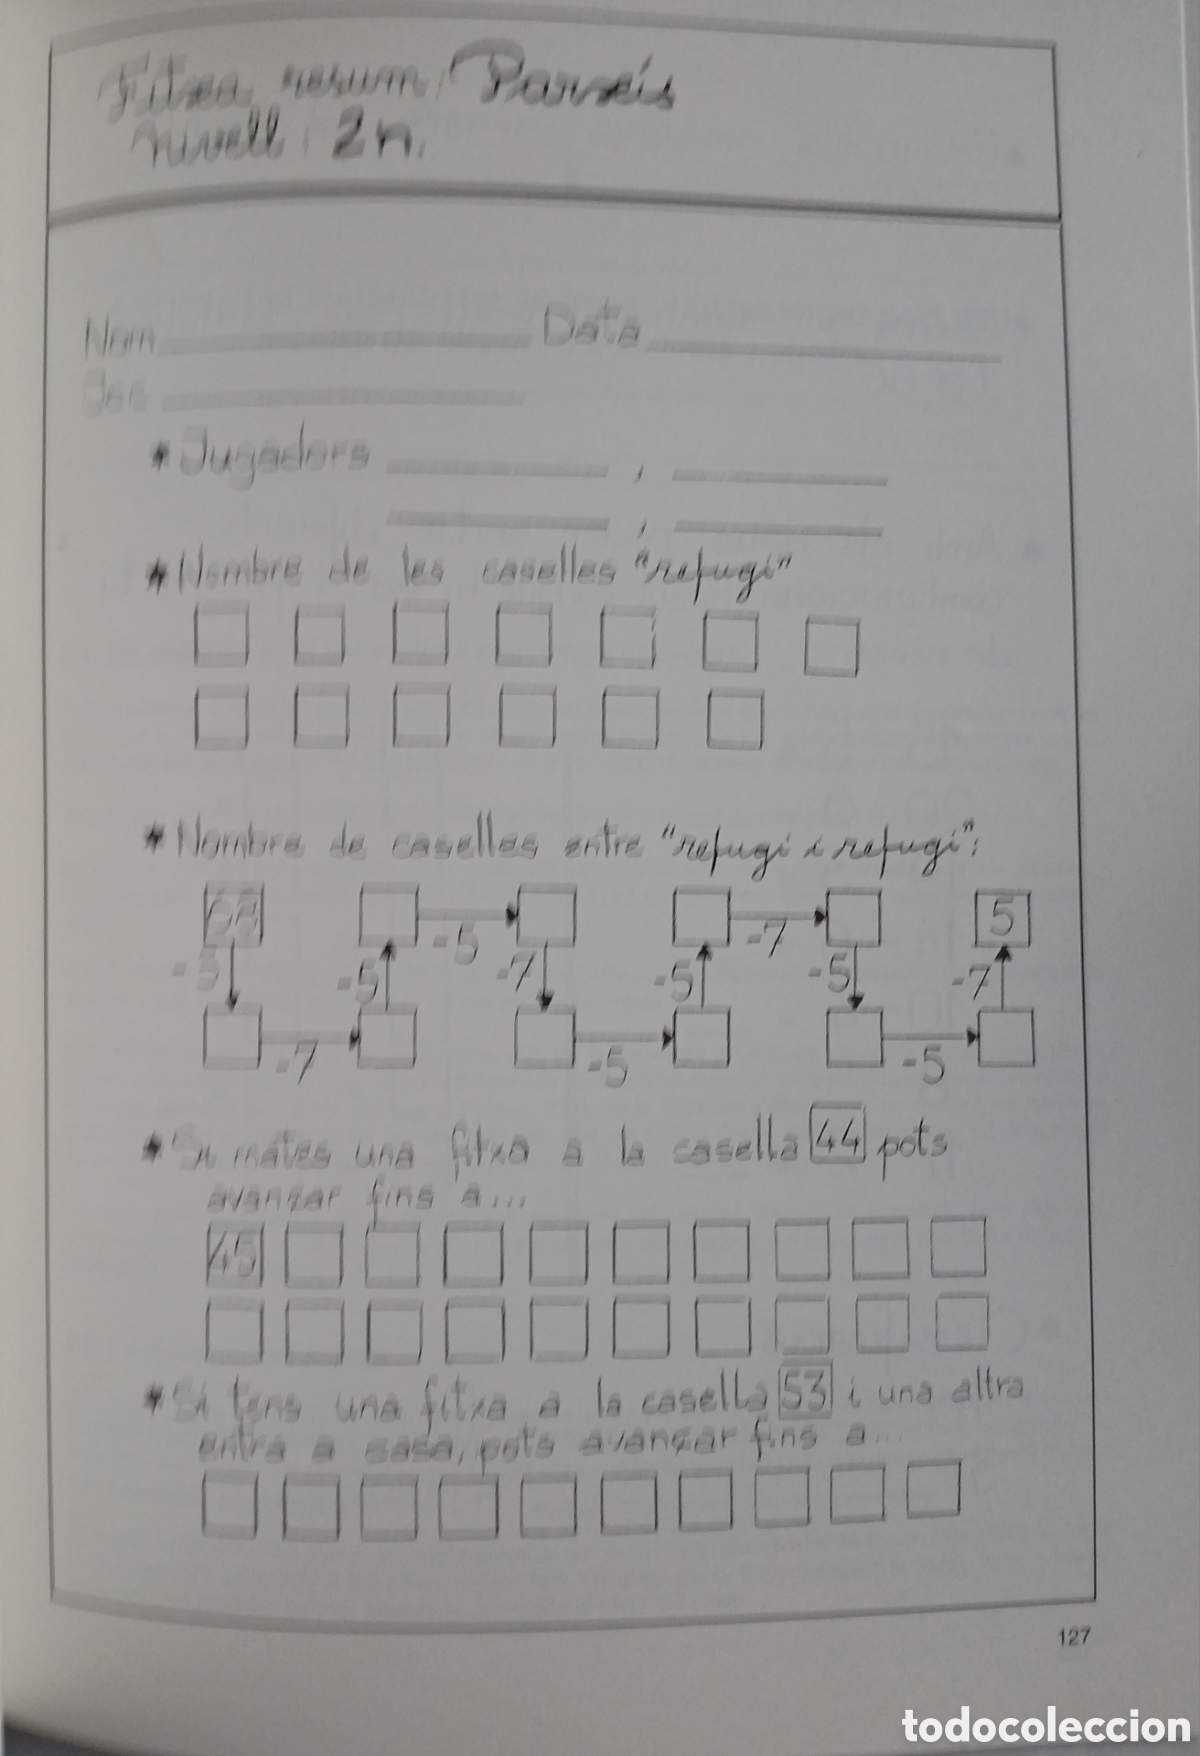 Fitxa resum: Parxís
Nivell: 2n.
Nom Data
Joc
* Jugadors , 
,
* Nombre de les caselles "refugi"
* Nombre de caselles entre "refugi i refugi":
68 5
-5 -7 -5 -5 -7 -5 -5 -7 -5 -5 -7
* Si mates una fitxa a la casella 44 pots
avançar fins a...
45
* Si tens una fitxa a la casella 53 i una altra
entra a casa, pots avançar fins a...
127
todocoleccion